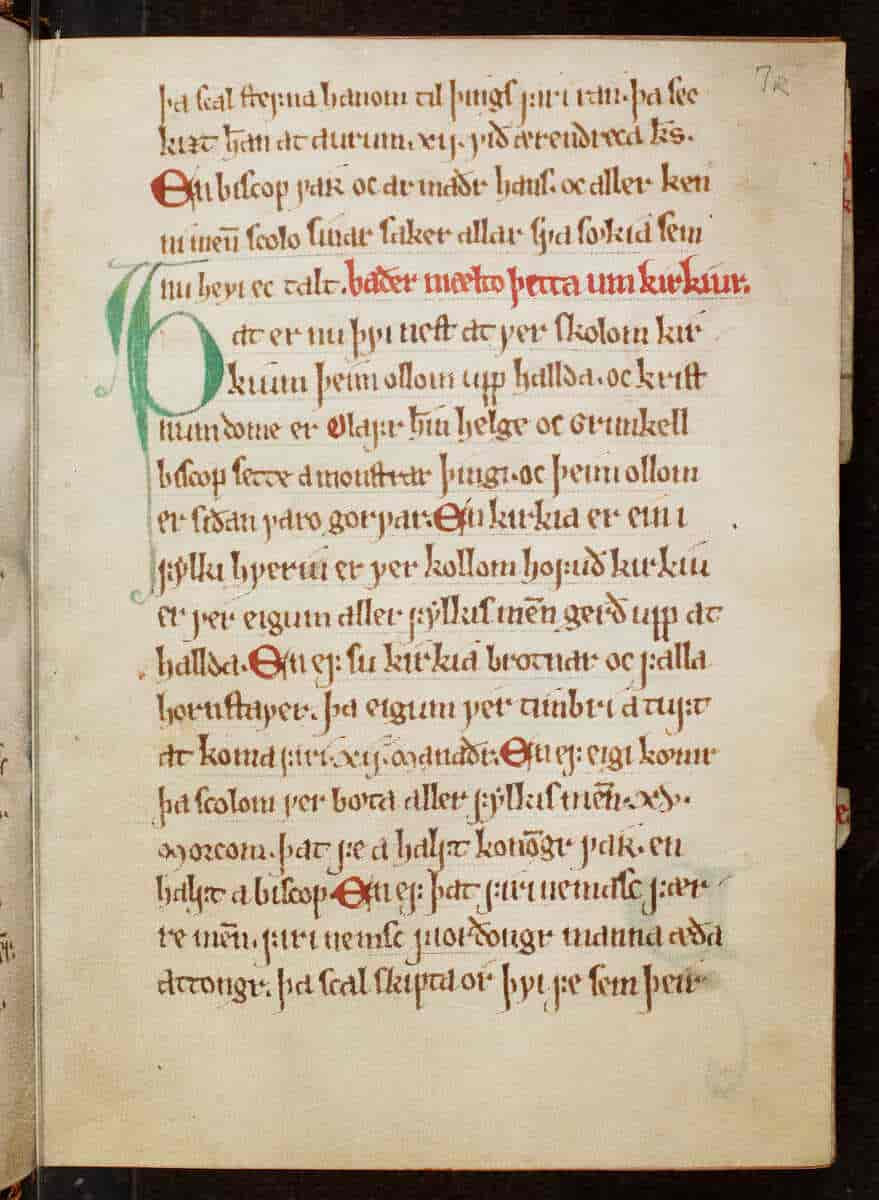 þa scal stefna hanom til þings firi ran. þa sec
kizt han̅ at aurum. xij. við ærendreca k̅s.
En biscop vaʀ oc armaðr hans. oc aller ken
ni men̅ scolo sinar saker allar sva sokia sem
nu hevi ec talt. baðer mælto þetta um kirkiur.
Þat er nu þvi nest at ver skolom kir
kium þeim ollom upp hallda. oc krist
numdome er Olafr hin̅ helge oc Grimkell
biscop sette a monstrar þingi. oc þeim ollom
er siðan varo gorvar. En kirkia er ein i
fylki hveriu er ver kollom hofuð kirkiu
er ver eigum aller fylkis men̅ gerð upp at
hallda. En ef su kirkia brotnar oc falla
hornstaver. þa eigum ver timbri a tuft
at koma firi. xij. manaðr. En ef eigi kømr
þa scolom ver bøta aller fylkis men̅. xv.
morcom. þat fe a halft kono̅gr vaʀ. en
halft a biscop. En ef þat firi nemasc fær
re men̅. firi nemsc fiorðongr manna æða
attongr. þa scal skipta or þvi fe sem þeir
7R